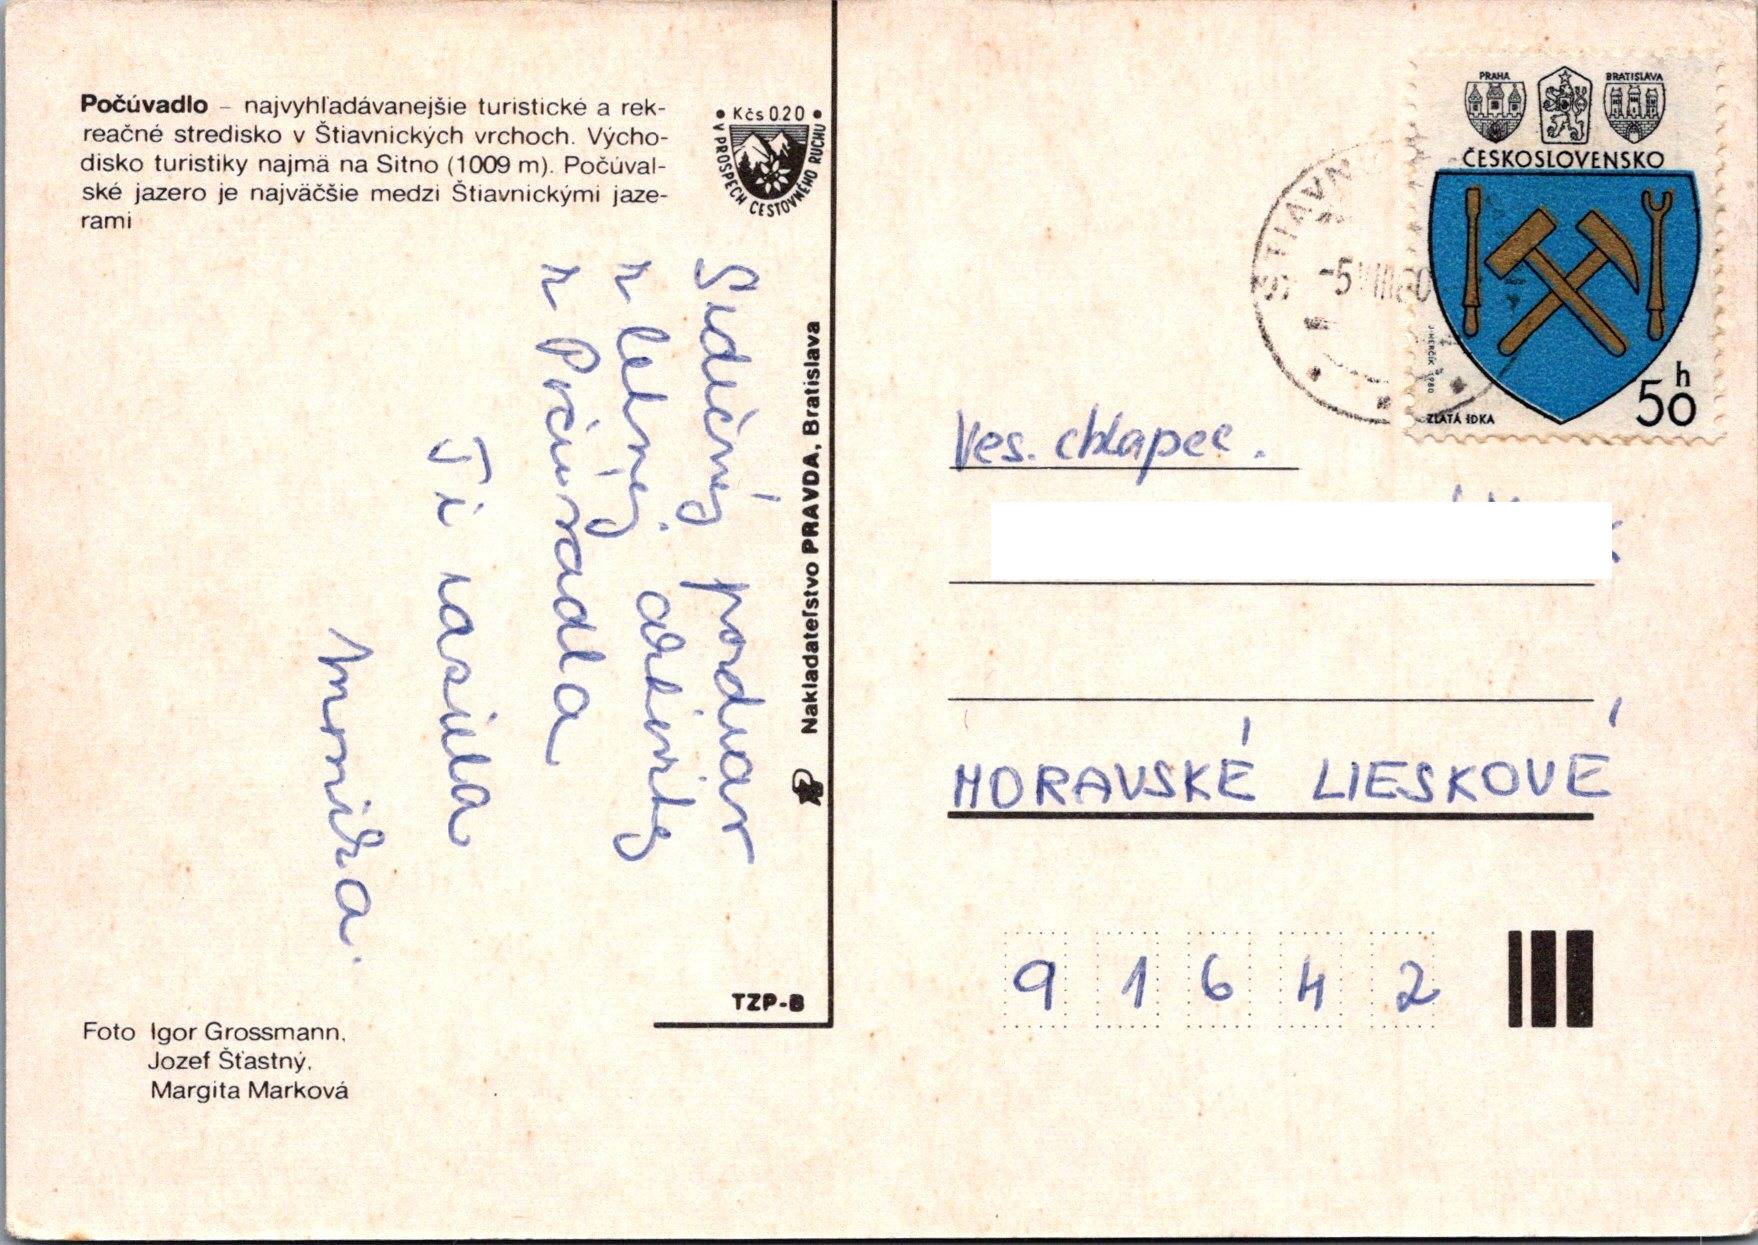 Počúvadlo – najvyhľadávanejšie turistické a rek-
reačné stredisko v Štiavnických vrchoch. Výcho-
disko turistiky najmä na Sitno (1009 m). Počúval-
ské jazero je najväčšie medzi Štiavnickými jaze-
rami
• Kčs 0.20 •
V PROSPECH CESTOVNÉHO RUCHU
Srdečný pozdrav
z letnej aktivity
z Počúvadla
Ti zasiela
Monika.
Nakladateľstvo PRAVDA, Bratislava
TZP-B
Foto Igor Grossmann,
Jozef Šťastný,
Margita Marková
PRAHA
BRATISLAVA
ČESKOSLOVENSKO
J. HERČÍK 1980
ZLATÁ IDKA
50 h
ŠTIAVN
-5 VIII 80
Ves. chlapec.
MORAVSKÉ LIESKOVÉ
9 1 6 4 2